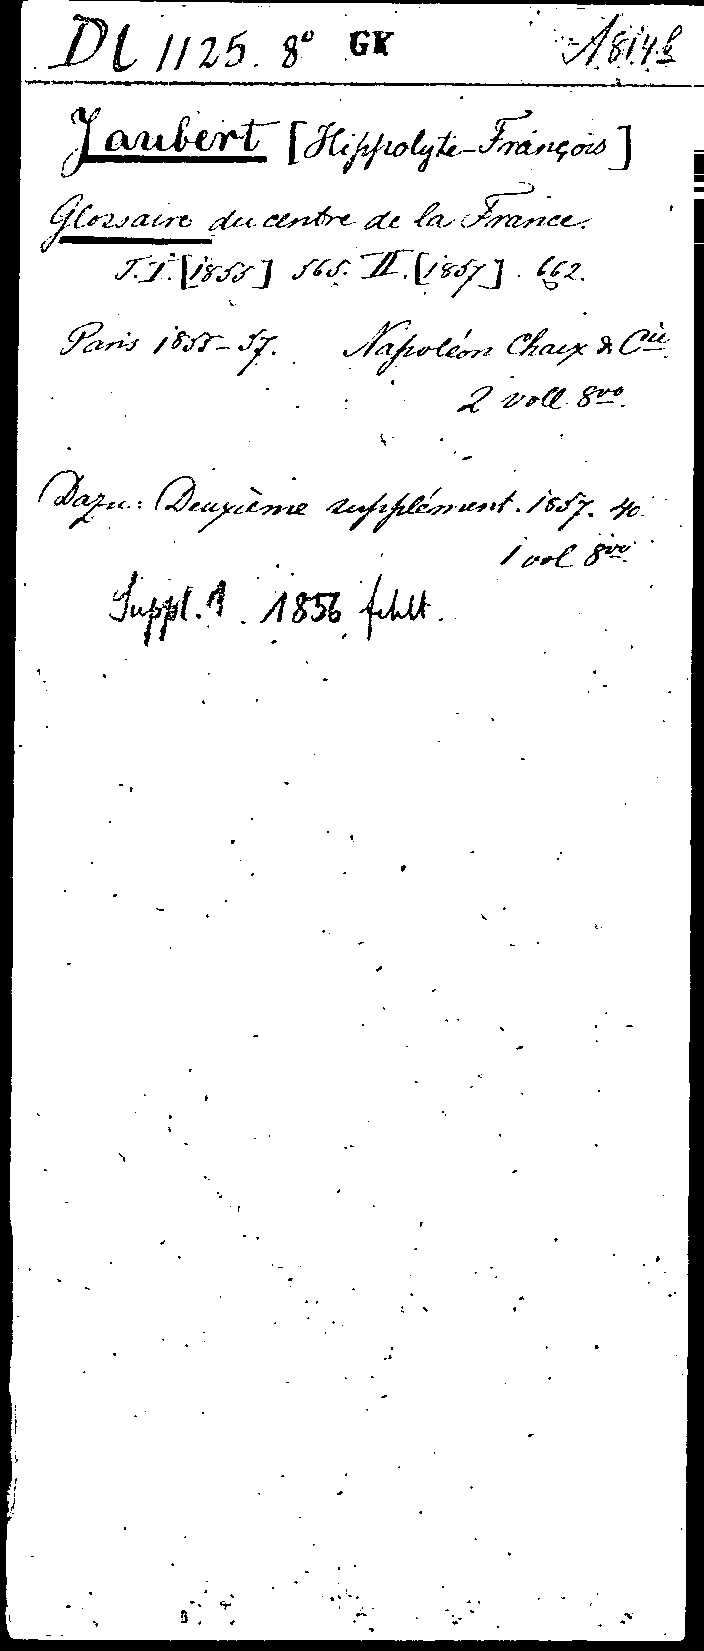 Dl 1125. 8° GK
Jaubert [Hippolyte-François]
Glossaire du centre de la France.
T. I. [1855] 565. II. [1857]. 662.
Paris 1855-57. Napoléon Chaix & Cie
2 voll 8vo.
Dazu: Deuxième supplément. 1857. 40
1 vol 8vo.
Suppl. 1. 1856 fehlt.